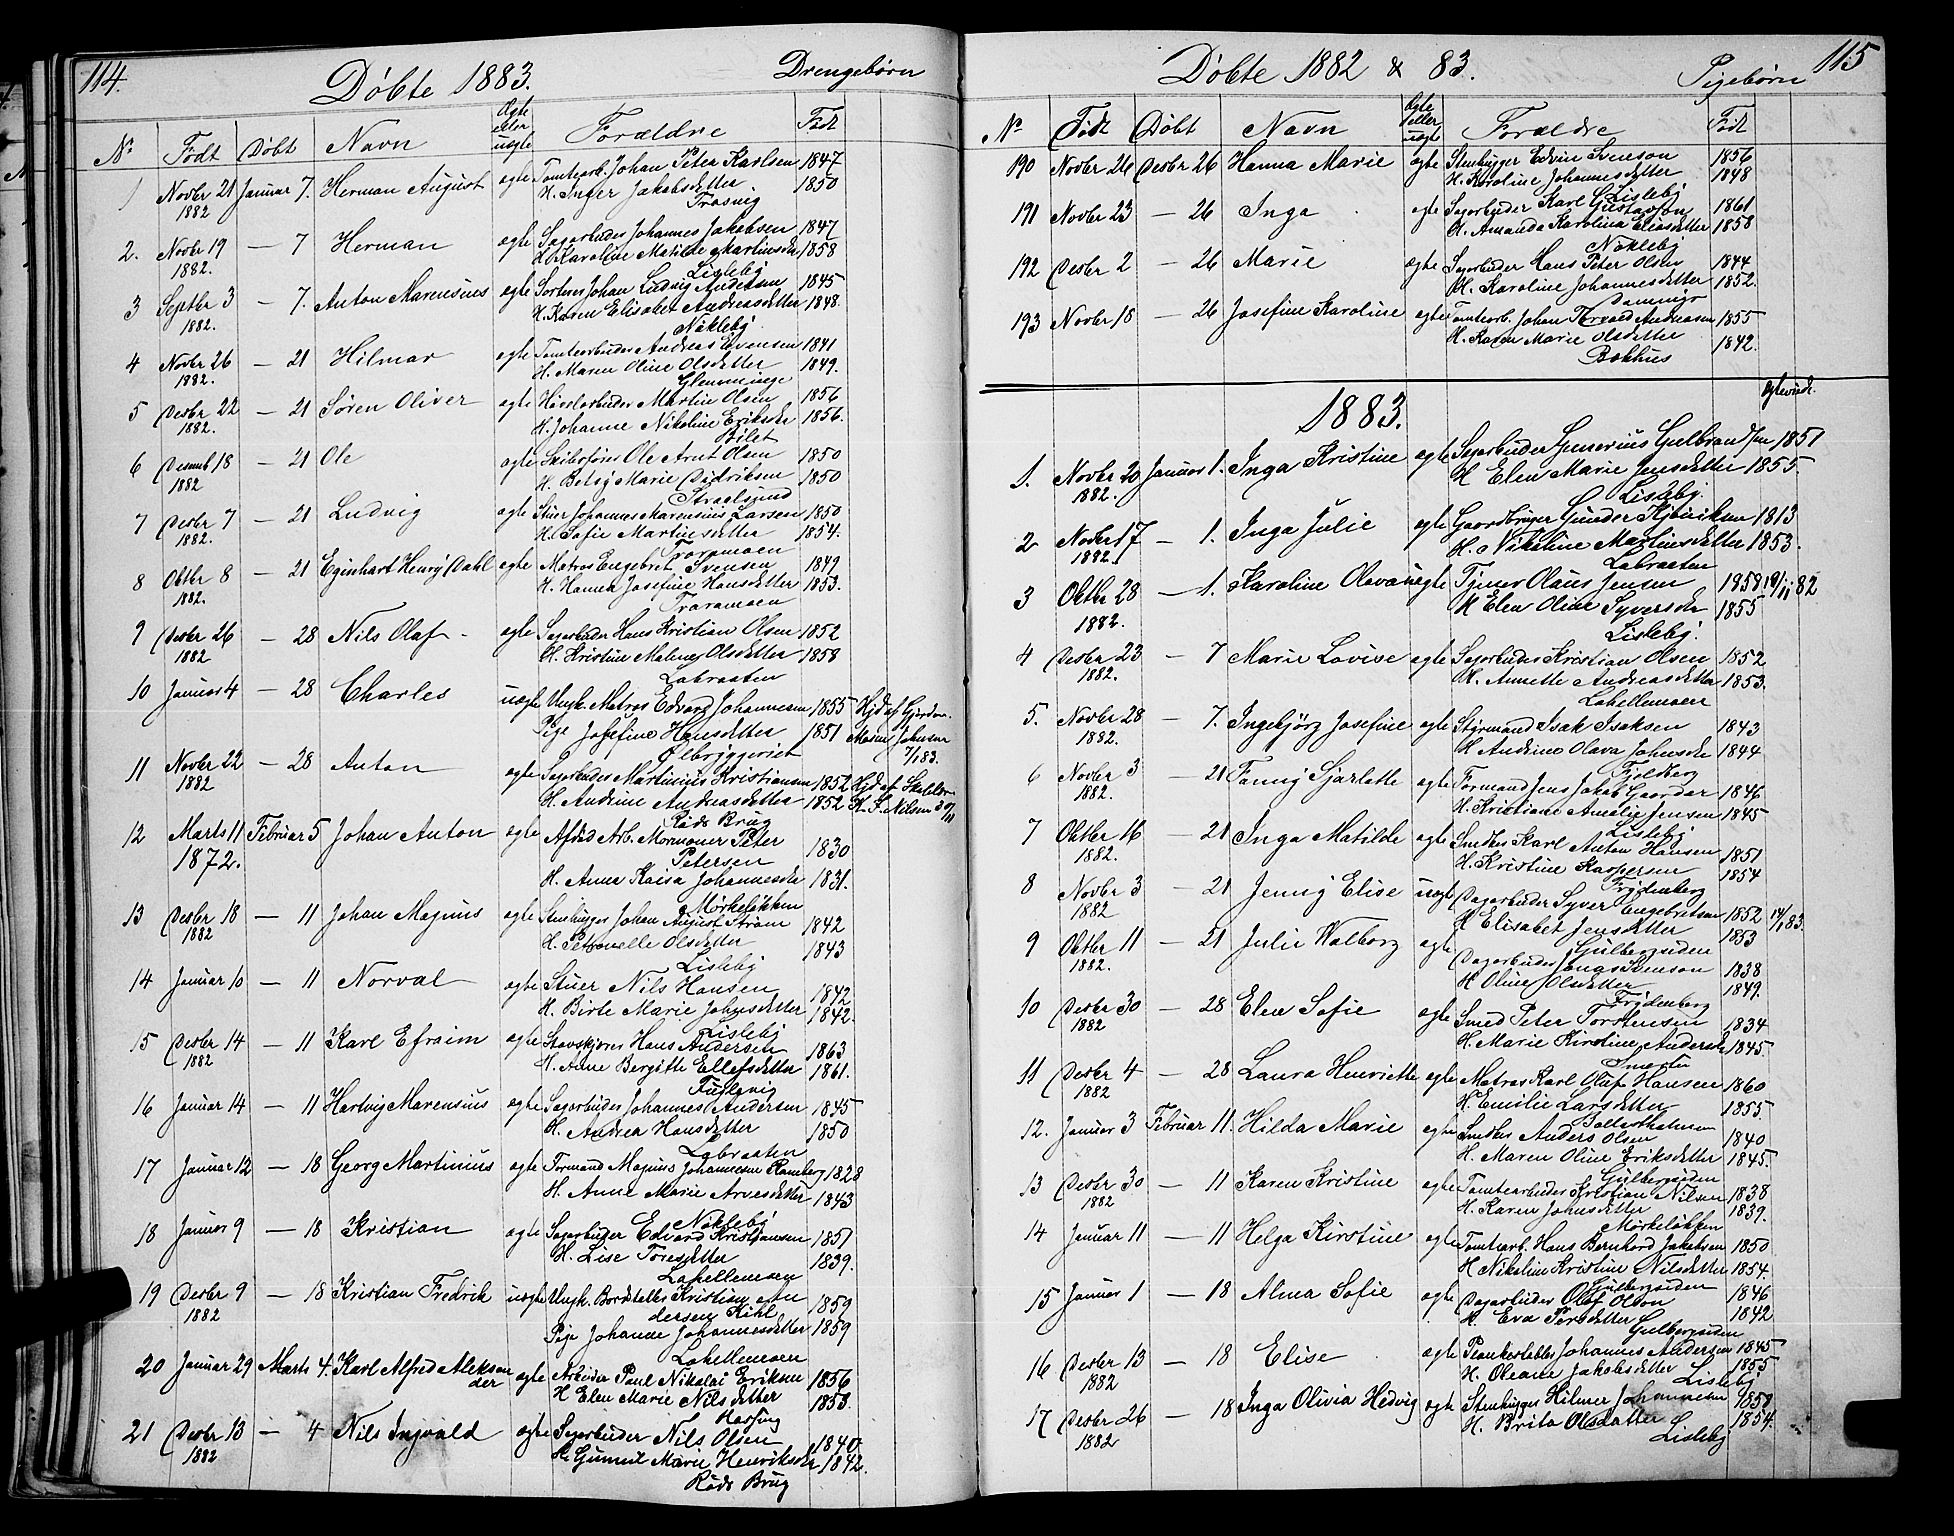 114.
Døbte 1883.
Drengebørn
No Født Døbt Navn Ægte eller uægte Forældre Født
1 Novbr 21 1882 Januar 7. Herman August ægte Tomtearb. Johan Peter Karlsen 1847
H. Inger Jakobsdetter 1850
Trosvig
2. Novbr 19 1882. — 7 Herman ægte Sagarbeider Johannes Jakobsen 1847
H. Karoline Matilde Martinsdr 1858
Lisleby
3 Septbr 3 1882. — 7. Anton Marensius ægte Sorterer Johan Ludvig Andersen 1845
H. Karen Elisabet Andreasdetter 1848.
Nøkleby
4 Novbr 26 1882. — 21 Hilmar ægte Tomtearbeider Andreas Evensen 1841
H. Maren Oline Olsdetter 1849.
Glemminge
5 Desbr 22 1882. — 21 Søren Oliver ægte Høvlarbeider Martin Olsen 1856
H. Johanne Nikoline Eriksdr 1856.
Bilet
6 Desmb 18 1882 — 21 Ole ægte Skibsfører Ole Arnt Olsen 1850
H. Betsy Marie Didriksen 1850
Straelsund
7 Desbr 7 1882. — 21 Ludvig ægte Stuer Johannes Marensius Larsen 1850
H. Sofie Martinsdetter 1854.
Traramoen
8 Oktbr 8 1882. — 21 Eginhart Henry Dahl ægte Matros Engebret Svensen 1849
H. Hanna Josefine Hansdetter 1853.
Traramoen
9 Desbr 26 1882 — 28 Nils Olaf ægte Sagarbeider Hans Kristian Olsen 1852
H. Kristine Malene Olsdetter 1858
Labraaten
10 Januar 4 — 28 Charles uægte Ungk. Matros Edvard Johannesen 1855 Hjd af Gjordm.
Pige Josefine Hansdetter 1851 Maren Johnsen
Ølbryggeriet 7/1 83.
11 Novbr 22 1882 — 28 Anton ægte Sagarbeider Martinius Kristiansen 1852 Hjd af
H. Andrine Andreasdetter 1852 K. S. Nilsen
Røds Brug
12 Marts 11 1872. Februar 5 Johan Anton ægte Afskd Arb. Mormoner Peter
Petersen 1830
H. Anna Kaisa Johannesdr 1831.
Mørkeløkken
13 Desbr 18 1882 — 11 Johan Magnus ægte Stenhugger Johan August Strøm 1842
H. Petronelle Olsdetter 1843
Lisleby
14 Januar 10 — 11 Norval ægte Stuer Nils Hansen 1842
H. Birte Marie Johnsdetter 1842.
Lisleby
15 Desbr 14 1882 — 11 Karl Efraim ægte Stavskjærer Hans Andersen 1863
H. Anne Bergitte Ellefsdetter 1861.
Fuglevig
16 Januar 14 — 11 Hartvig Marensius ægte Sagarbeider Johannes Andersen 1845
H. Andrea Hansdetter 1850
Labraaten
17 Januar 12 — 18 Georg Martinius ægte Formand Magnus Johannesen Ramberg 1828
H. Anne Marie Arvesdetter 1843
Nøkleby
18 Januar 9 — 18 Kristian ægte Sagarbeider Edvard Kristiansen 1851
H. Lise Toresdetter 1839.
Lahellemoen
19 Desbr 9 1882 — 18 Kristian Fredrik uægte Ungk. Bordtæller Kristian An
dersen Kihl 1859
Pige Johanne Johannesdetter 1859
Lahellemoen
20 Januar 29 Marts 4. Karl Alfred Aleksan
der ægte Arbeider Paul Nikolai Eriksen 1856
H Elen Marie Nilsdetter 1853.
Hassing
21 Desbr 13 1882 — 4 Nils Ingvald ægte Sagarbeider Nils Olsen 1840
H. Gunnil Marie Henriksdr 1842.
Røds Brug
115
Døbte 1882 & 83.
Pigebørn
No Født Døbt Navn Ægte eller uægte Forældre Født
190 Novbr 26 Desbr 26 Hanna Marie ægte Stenhugger Edvin Svenson 1856
H. Karoline Johannesdetter 1848
Lisleby
191 Novbr 23 — 26 Inga ægte Sagarbeider Karl Gustafson 1861
H. Amanda Karolina Eliasdetter 1858
Nøkleby
192 Desbr 2 — 26 Marie ægte Sagarbeider Hans Peter Olsen 1844
H. Karoline Johannesdetter 1852.
193 Novbr 18 — 26 Josefine Karoline ægte Tomtearb. Johan Torvald Andreasen 1855
H. Karen Marie Olsdetter 1842.
Bakhus
1883.
Ægteviede.
1. Novbr 20 1882. Januar 1. Inga Kristine ægte Sagarbeider Gunerius Gulbrandsen 1851
H Elen Marie Jensdetter 1855.
Lisleby.
2 Novbr 17 1882. — 1. Inga Julie ægte Gaardbruger Gunder Henriksen 1813
H. Nikoline Martinsdetter 1853.
Labraaten
3 Oktbr 28 1882. — 1. Karoline Olava uægte Tjener Olaus Jensen 1858 19/11 82
H Elen Oline Syversdr 1855
Lisleby.
4 Desbr 23 1882. — 7 Marie Lovise ægte Sagarbeider Kristian Olsen 1852
H. Annette Andreasdetter 1853.
Lahellemoen
5. Novbr 28 1882. — 7. Ingebjørg Josefine ægte Styrmand Isak Isaksen 1843
H Andrine Olava Johnsdr 1844
Fjeldberg
6 Novbr 3 1882. — 21 Fanny Sjarlotte ægte Formand Jens Jakob Gaarder 1846
H. Kristiane Amalie Jensen 1845
Lisleby
7 Oktbr 16 1882. — 21 Inga Matilde ægte Snedker Karl Anton Hansen 1851
H. Kristine Kaspersen 1854
Frydenberg
8 Novbr 3 1882 — 21 Jenny Elise uægte Dagarbeider Syver Engebretsen 1852 14/1 83.
H Elisabet Jensdetter 1853
Gulbergsiden
9 Oktbr 11 1882. — 21 Julie Valborg ægte Dagarbeider Jonas Svenson 1838
H Oline Olsdetter 1849.
Frydenberg
10 Desbr 30 1882 — 28 Elen Sofie ægte Smed Peter Torstensen 1834
H. Marie Kirstine Andersdr 1845.
Smerten
11 Desbr 4 1882 — 28 Laura Henriette ægte Matros Karl Olaf Hansen 1860
H. Emilie Larsdetter 1855.
12. Januar 3 Februar 11. Hilda Marie ægte Snedker Anders Olsen 1840
H. Maren Oline Eriksdetter 1845.
Gulbergsiden
13 Desbr 30 1882 — 11 Karen Kristine ægte Tomtearbeider Kristian Nilsen 1838
H. Karen Johnsdetter 1839.
Mørkeløkken
14 Januar 11 — 11 Helga Kirstine ægte Tomtearb. Hans Bernhard Jakobsen 1850
H Nikoline Kristine Nilsdetter 1854.
Gulbergsiden
15 Januar 1 — 18 Alma Sofie ægte Dagarbeider Olof Olson 1846
H. Eva Persdetter 1842
Gulbergsiden
16 Desbr 13 1882 — 18 Elise ægte Planketæller Johannes Andersen 1845
H. Oleane Jakobsdetter 1855
Lisleby
17 Desbr 26 1882 — 18 Inga Olivia Hedvig ægte Stenhugger Hilmer Johannesen 1858
H. Brita Olsdatter 1854.
Lisleby